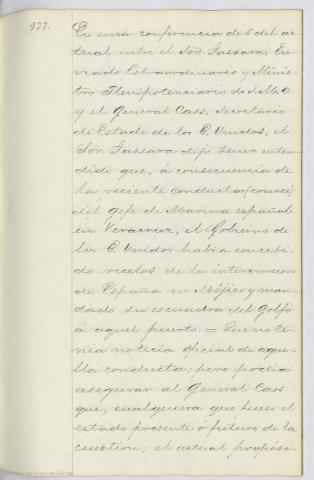 937.
En una conferencia de 6 del ac-
tual entre el Sor. Tassara, En-
viado Extraordinario y Minis-
tro Plenipotenciario de S.M.C.
y el General Cass, Secretario
de Estado de los E. Unidos, el
Sor. Tassara dijo tener enten-
dido que, á consecuencia de
la reciente conducta (course)
del gefe de Marina español
en Veracruz, el Gobierno de
los E. Unidos habia concebi-
do recelos de la intervencion
de España en Méjico y man-
dado su escuadra del Golfo
á aquel puerto. = Que no te-
nia noticia oficial de aque-
lla conducta; pero podia
asegurar al General Cass
que, cualquiera que fuese el
estado presente ó futuro de la
cuestion, el actual propósi-